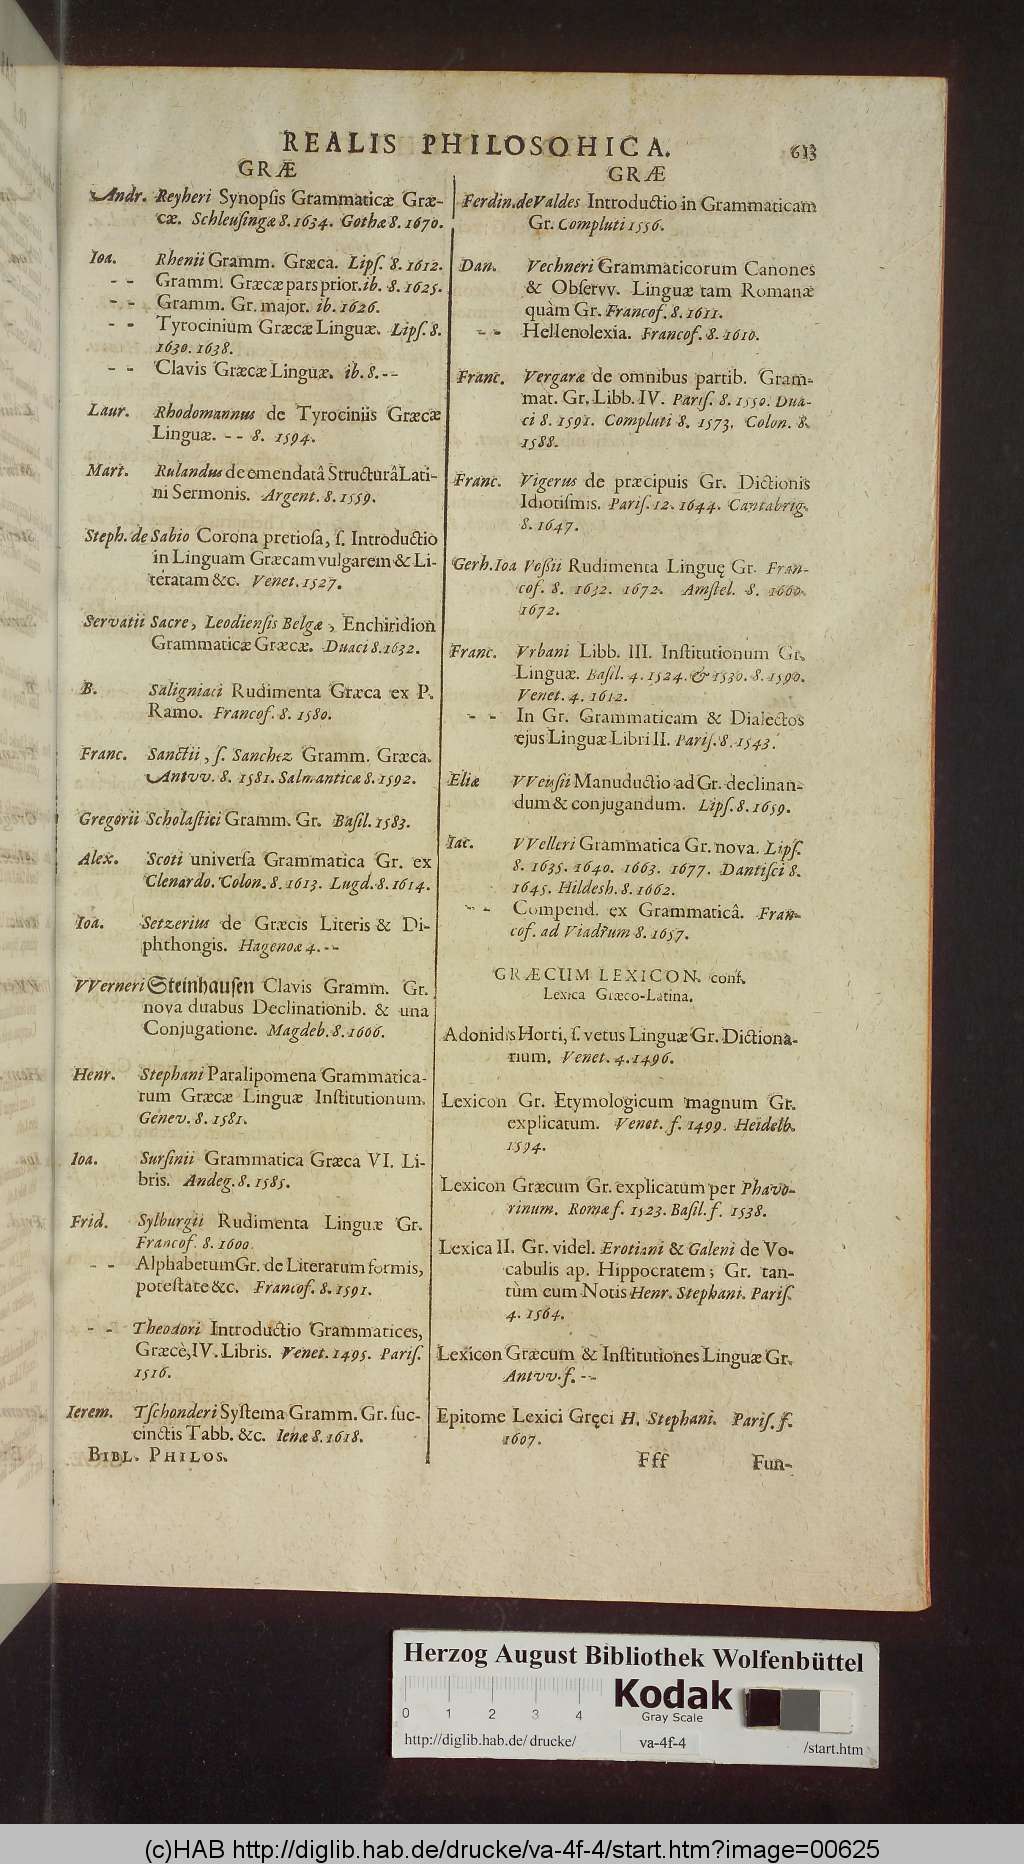 REALIS PHILOSOHICA.
613
GRÆ
Andr. Reyheri Synopſis Grammaticæ Græ-
cæ. Schleuſingæ 8. 1634. Gothæ 8. 1670.
Ioa. Rhenii Gramm. Græca. Lipſ. 8. 1612.
- - Gramm. Græcæ pars prior. ib. 8. 1625.
- - Gramm. Gr. major. ib. 1626.
- - Tyrocinium Græcæ Linguæ. Lipſ. 8.
1630. 1638.
- - Clavis Græcæ Linguæ. ib. 8. --
Laur. Rhodomannus de Tyrociniis Græcæ
Linguæ. -- 8. 1594.
Mart. Rulandus de emendatâ Structurâ Lati-
ni Sermonis. Argent. 8. 1559.
Steph. de Sabio Corona pretioſa, ſ. Introductio
in Linguam Græcam vulgarem & Li-
teratam &c. Venet. 1527.
Servatii Sacre, Leodienſis Belgæ, Enchiridion
Grammaticæ Græcæ. Duaci 8. 1632.
B. Saligniaci Rudimenta Græca ex P.
Ramo. Francof. 8. 1580.
Franc. Sanctii, ſ. Sanchez Gramm. Græca.
Antvv. 8. 1581. Salmanticæ 8. 1592.
Gregorii Scholaſtici Gramm. Gr. Baſil. 1583.
Alex. Scoti univerſa Grammatica Gr. ex
Clenardo. Colon. 8. 1613. Lugd. 8. 1614.
Ioa. Setzerius de Græcis Literis & Di-
phthongis. Hagenoæ 4. --
VVerneri Steinhauſen Clavis Gramm. Gr.
nova duabus Declinationib. & una
Conjugatione. Magdeb. 8. 1606.
Henr. Stephani Paralipomena Grammatica-
rum Græcæ Linguæ Inſtitutionum.
Genev. 8. 1581.
Ioa. Surſinii Grammatica Græca VI. Li-
bris. Andeg. 8. 1585.
Frid. Sylburgii Rudimenta Linguæ Gr.
Francof. 8. 1600.
- - Alphabetum Gr. de Literarum formis,
poteſtate &c. Francof. 8. 1591.
- - Theodori Introductio Grammatices,
Græcè, IV. Libris. Venet. 1495. Pariſ.
1516.
Ierem. Tſchonderi Syſtema Gramm. Gr. ſuc-
cinctis Tabb. &c. Ienæ 8. 1618.
BIBL. PHILOS.
GRÆ
Ferdin. de Valdes Introductio in Grammaticam
Gr. Compluti 1556.
Dan. Vechneri Grammaticorum Canones
& Obſervv. Linguæ tam Romanæ
quàm Gr. Francof. 8. 1611.
- - Hellenolexia. Francof. 8. 1610.
Franc. Vergaræ de omnibus partib. Gram-
mat. Gr. Libb. IV. Pariſ. 8. 1550. Dua-
ci 8. 1591. Compluti 8. 1573. Colon. 8.
1588.
Franc. Vigerus de præcipuis Gr. Dictionis
Idiotiſmis. Pariſ. 12. 1644. Cantabrig.
8. 1647.
Gerh. Ioa Voßii Rudimenta Linguę Gr. Fran-
cof. 8. 1632. 1672. Amſtel. 8. 1660.
1672.
Franc. Vrbani Libb. III. Inſtitutionum Gr.
Linguæ. Baſil. 4. 1524. & 1530. 8. 1590.
Venet. 4. 1612.
- - In Gr. Grammaticam & Dialectos
ejus Linguæ Libri II. Pariſ. 8. 1543.
Eliæ VVeuſii Manuductio ad Gr. declinan-
dum & conjugandum. Lipſ. 8. 1659.
Iac. VVelleri Grammatica Gr. nova. Lipſ.
8. 1635. 1640. 1663. 1677. Dantiſci 8.
1645. Hildesh. 8. 1662.
- - Compend. ex Grammaticâ. Fran-
cof. ad Viadrum 8. 1657.
GRÆCUM LEXICON. conf.
Lexica Græco-Latina.
Adonidis Horti, ſ. vetus Linguæ Gr. Dictiona-
rium. Venet. 4. 1496.
Lexicon Gr. Etymologicum magnum Gr.
explicatum. Venet. f. 1499. Heidelb.
1594.
Lexicon Græcum Gr. explicatum per Phavo-
rinum. Romæ f. 1523. Baſil. f. 1538.
Lexica II. Gr. videl. Erotiani & Galeni de Vo-
cabulis ap. Hippocratem; Gr. tan-
tùm cum Notis Henr. Stephani. Pariſ.
4. 1564.
Lexicon Græcum & Inſtitutiones Linguæ Gr.
Antvv. f. --
Epitome Lexici Gręci H. Stephani. Pariſ. f.
1607.
Fff Fun-
Herzog August Bibliothek Wolfenbüttel
Kodak
Gray Scale
0 1 2 3 4
http://diglib.hab.de/drucke/ va-4f-4 /start.htm
(c)HAB http://diglib.hab.de/drucke/va-4f-4/start.htm?image=00625